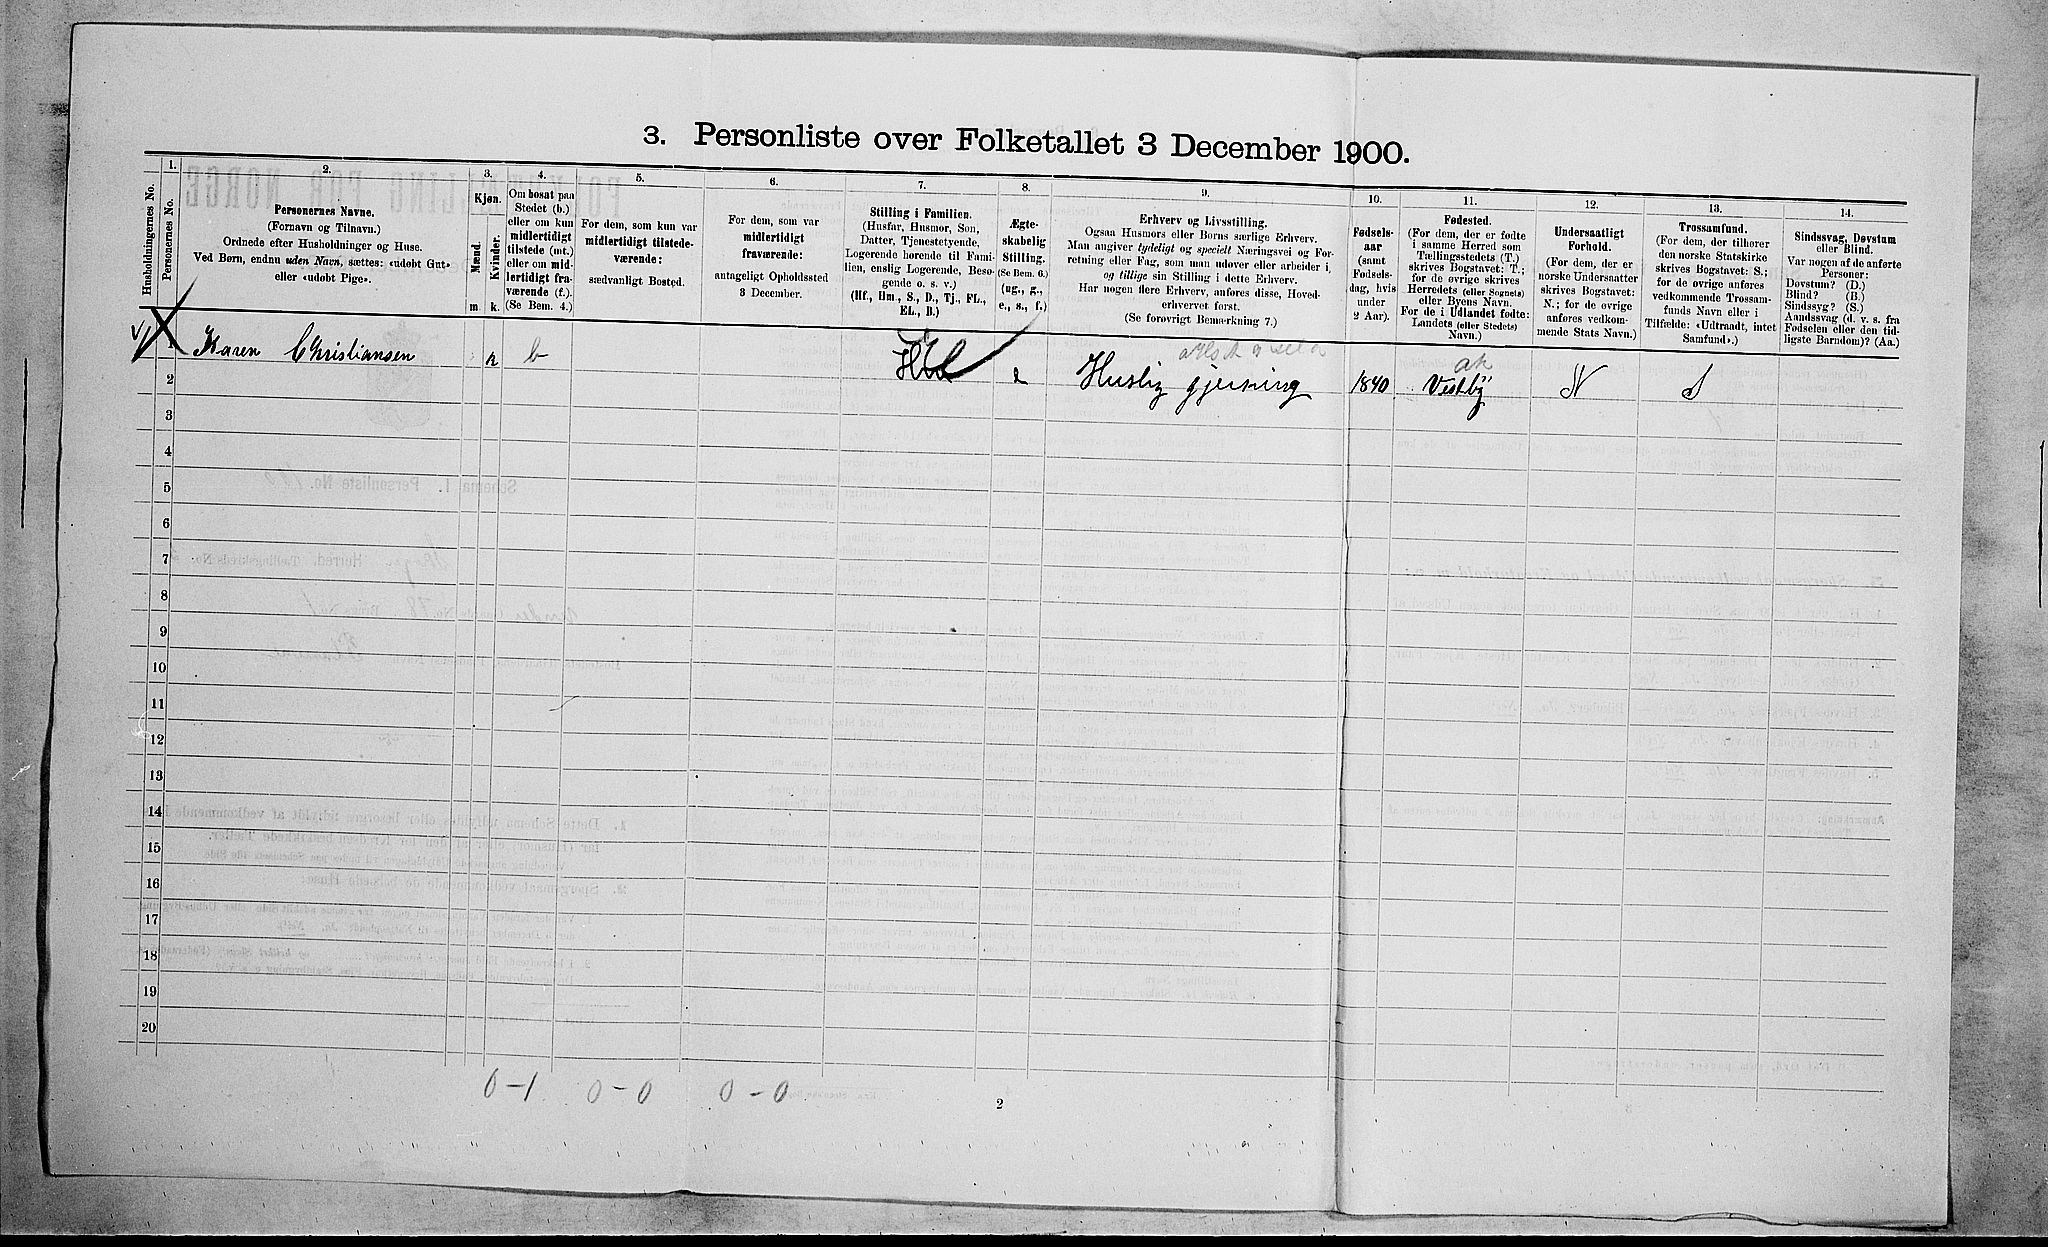 3. Personliste over Folketallet 3 December 1900.
Husholdningernes No.
1.
Personernes No.
2.
Personernes Navne.
(Fornavn og Tilnavn.)
Ordnede efter Husholdninger og Huse.
Ved Børn, endnu uden Navn, sættes: «udøbt Gut»
eller «udøbt Pige».
3.
Kjøn.
Mænd.
Kvinder.
m.
k.
4.
Om bosat paa
Stedet (b.)
eller om kun
midlertidigt
tilstede (mt.)
eller om mid-
lertidigt fra-
værende (f.).
(Se Bem. 4.)
5.
For dem, som kun var
midlertidigt tilstede-
værende:
sædvanligt Bosted.
6.
For dem, som var
midlertidigt
fraværende:
antageligt Opholdssted
3 December.
7.
Stilling i Familien.
(Husfar, Husmor, Søn,
Datter, Tjenestetyende,
Logerende hørende til Fami-
lien, enslig Logerende, Besø-
gende o. s. v.)
(Hf., Hm., S., D., Tj., FL.,
EL., B.)
8.
Ægte-
skabelig
Stilling.
(Se Bem. 6.)
(ug., g.,
e., s., f.)
9.
Erhverv og Livsstilling.
Ogsaa Husmors eller Børns særlige Erhverv.
Man angiver tydeligt og specielt Næringsvei og For-
retning eller Fag, som man udøver eller arbeider i,
og tillige sin Stilling i dette Erhverv.
Har nogen flere Erhverv, anføres disse, Hoved-
erhvervet først.
(Se forøvrigt Bemærkning 7.)
10.
Fødsels-
aar
(samt
Fødsels-
dag, hvis
under
2 Aar).
11.
Fødested.
(For dem, der er fødte
i samme Herred som
Tællingsstedets (T.)
skrives Bogstavet: T.;
for de øvrige skrives
Herredets (eller Sognets)
eller Byens Navn.
For de i Udlandet fødte:
Landets (eller Stedets)
Navn.)
12.
Undersaatligt
Forhold.
(For dem, der er
norske Undersaatter
skrives Bogstavet:
N.; for de øvrige
anføres vedkom-
mende Stats Navn.)
13.
Trossamfund.
(For dem, der tilhører
den norske Statskirke
skrives Bogstavet: S.;
for de øvrige anføres
vedkommende Trossam-
funds Navn eller i
Tilfælde: «Udtraadt, intet
Samfund».)
14.
Sindssvag, Døvstum
eller Blind.
Var nogen af de anførte
Personer:
Døvstum? (D.)
Blind? (B.)
Sindssyg? (S.)
Aandssvag (d. v. s. fra
Fødselen eller den tid-
ligste Barndom)? (Aa.)
1 Karen Christiansen b e Huslig gjerning 1840 Vestby N S
ak
2
3
4
5
6
7
8
9
10
11
12
13
14
15
16
17
18
19
20
0-1 0-0 0-0
2